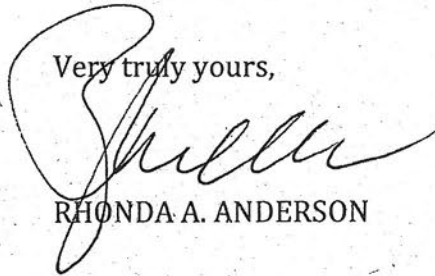 Very truly yours,
RHONDA A. ANDERSON